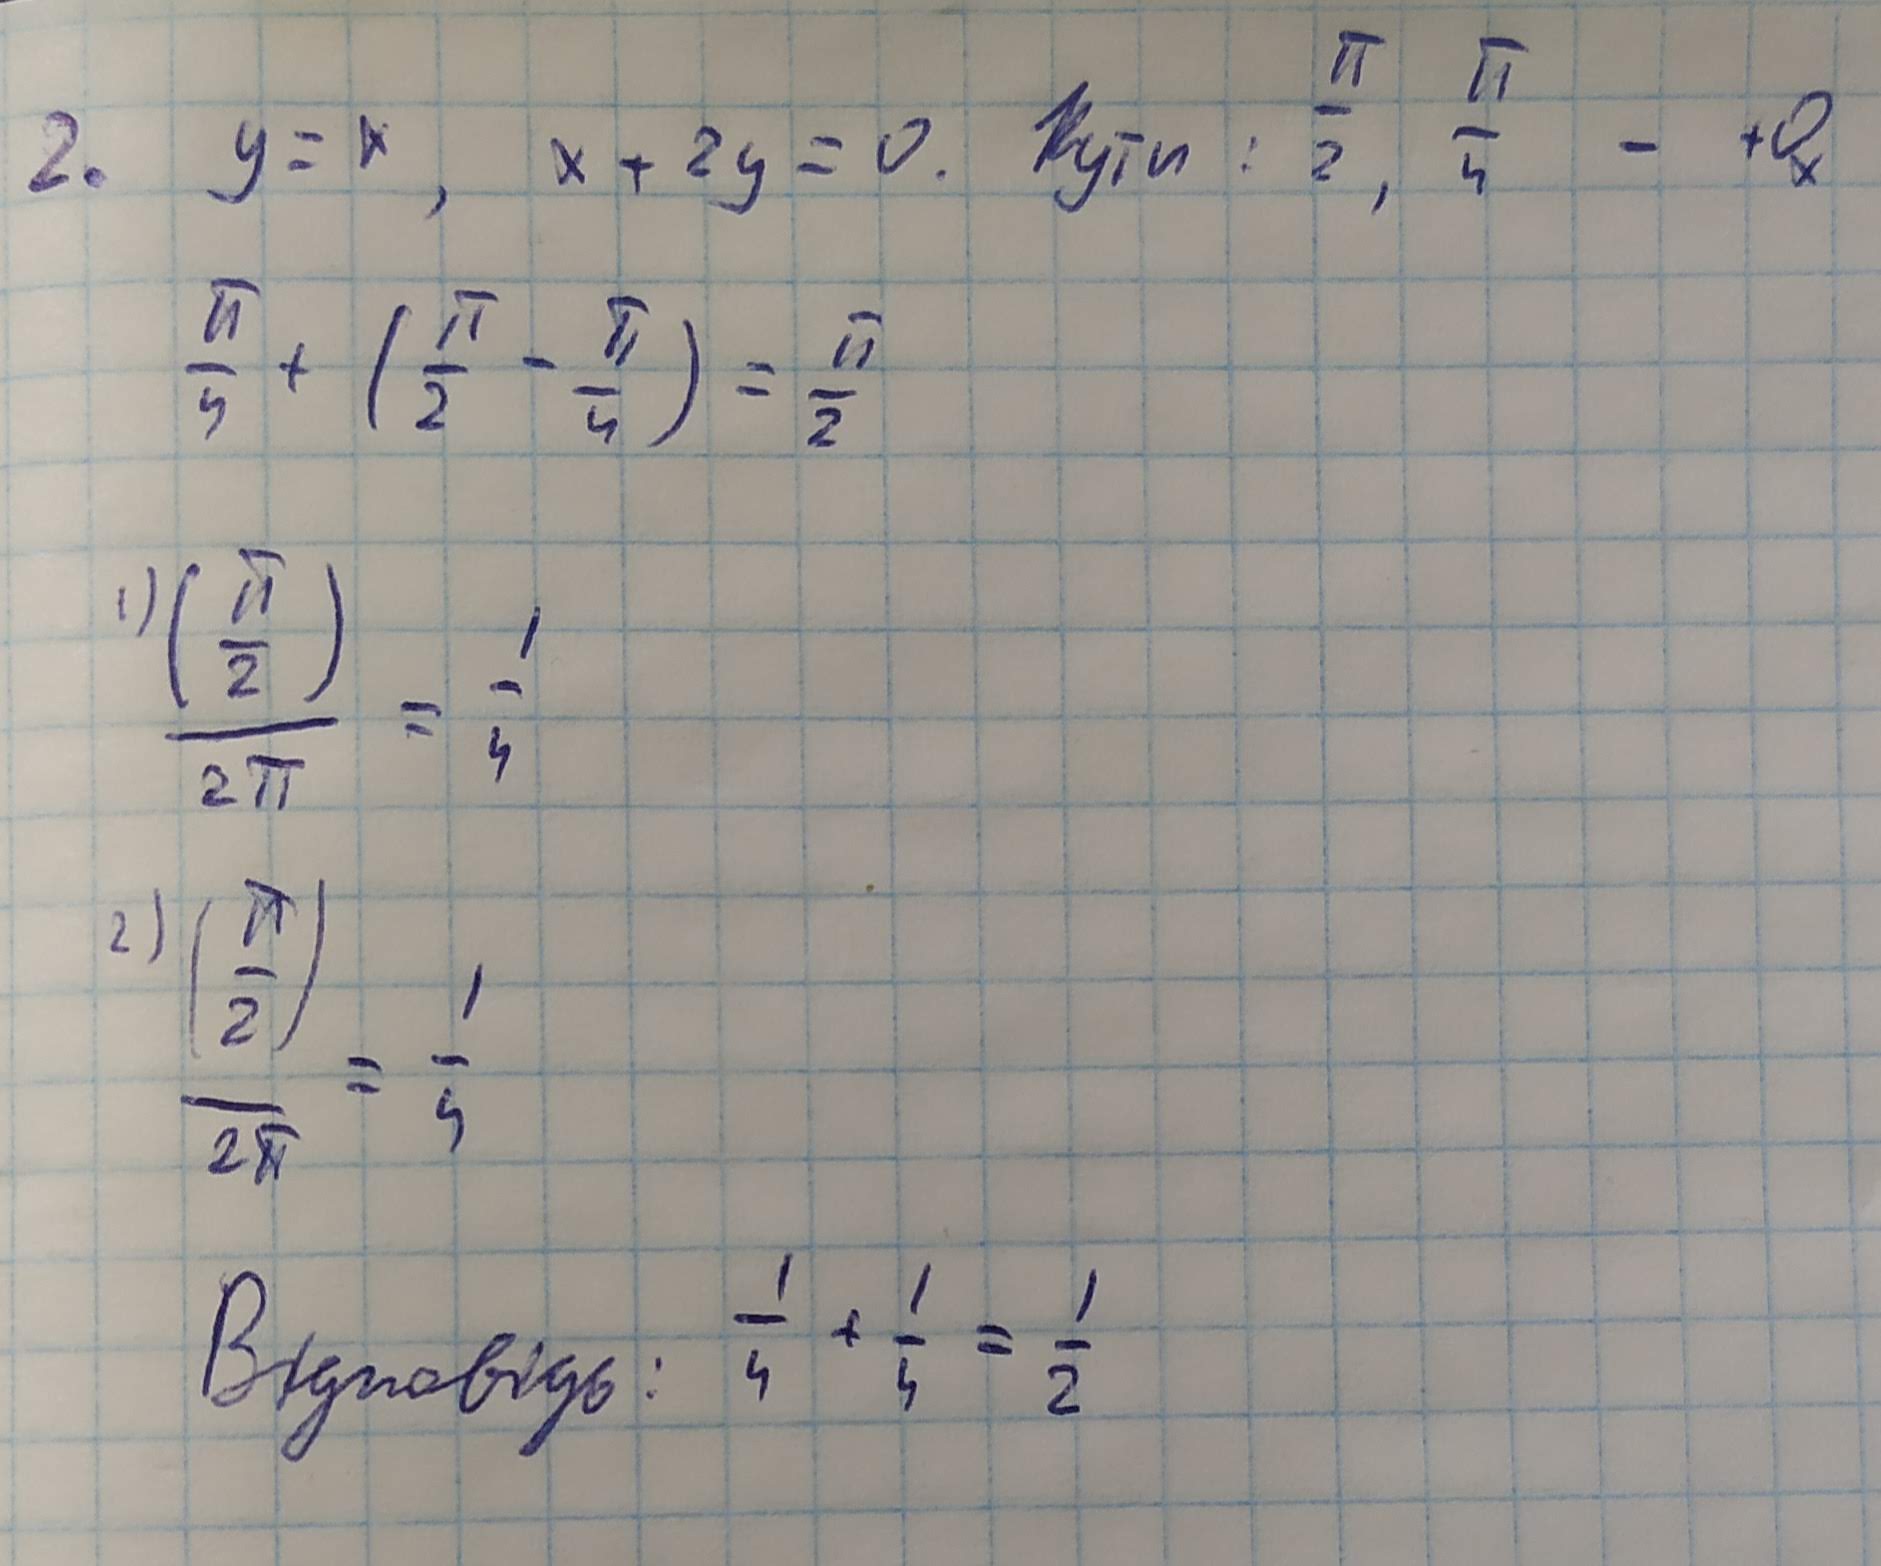 2. y = x, x + 2y = 0. Кути: π/2, π/4 - +Ox
π/4 + (π/2 - π/4) = π/2
1) (π/2)/2π = 1/4
2) (π/2)/2π = 1/4
Відповідь: 1/4 + 1/4 = 1/2